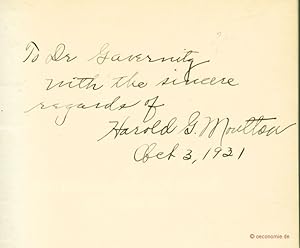 To Dr Gavernitz
with the sincere
regards of
Harold G. Moulton
Oct 3, 1931
© oeconomie.de